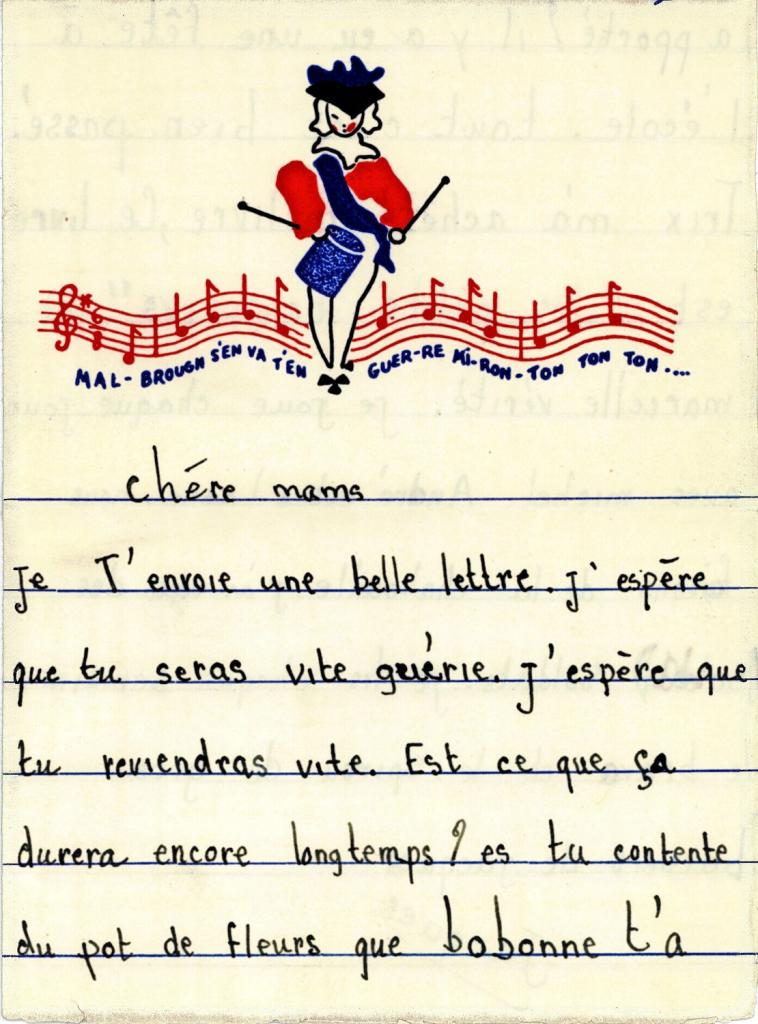 MAL-BROUGH S'EN VA T'EN GUER-RE MI-RON-TON TON TON....
chére mams
je T'envoie une belle lettre. j'espère
que tu seras vite guérie. j'espère que
tu reviendras vite. Est ce que ça
durera encore longtemps? es tu contente
du pot de fleurs que bobonne t'a